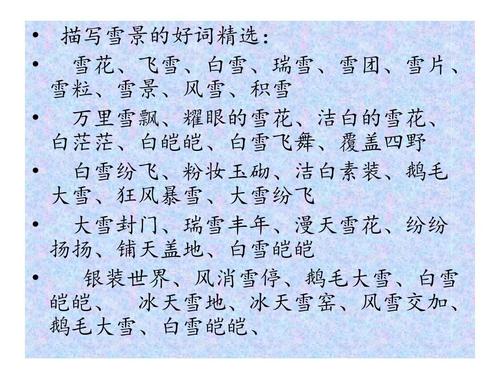 • 描写雪景的好词精选：
• 雪花、飞雪、白雪、瑞雪、雪团、雪片、
雪粒、雪景、风雪、积雪
• 万里雪飘、耀眼的雪花、洁白的雪花、
白茫茫、白皑皑、白雪飞舞、覆盖四野
• 白雪纷飞、粉妆玉砌、洁白素装、鹅毛
大雪、狂风暴雪、大雪纷飞
• 大雪封门、瑞雪丰年、漫天雪花、纷纷
扬扬、铺天盖地、白雪皑皑
• 银装世界、风消雪停、鹅毛大雪、白雪
皑皑、 冰天雪地、冰天雪窑、风雪交加、
鹅毛大雪、白雪皑皑、